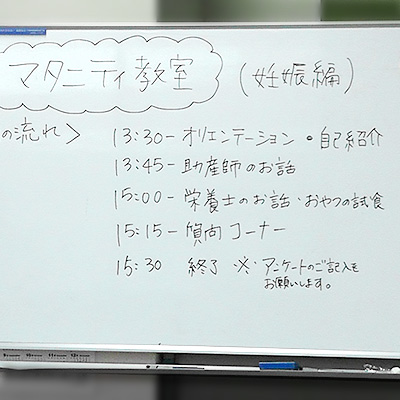 マタニティ教室 (妊娠編)
の流れ>
13:30-オリエンテーション・自己紹介
13:45-助産師のお話
15:00-栄養士のお話・おやつの試食
15:15-質問コーナー
15:30 終了 ※アンケートのご記入を
お願いします。